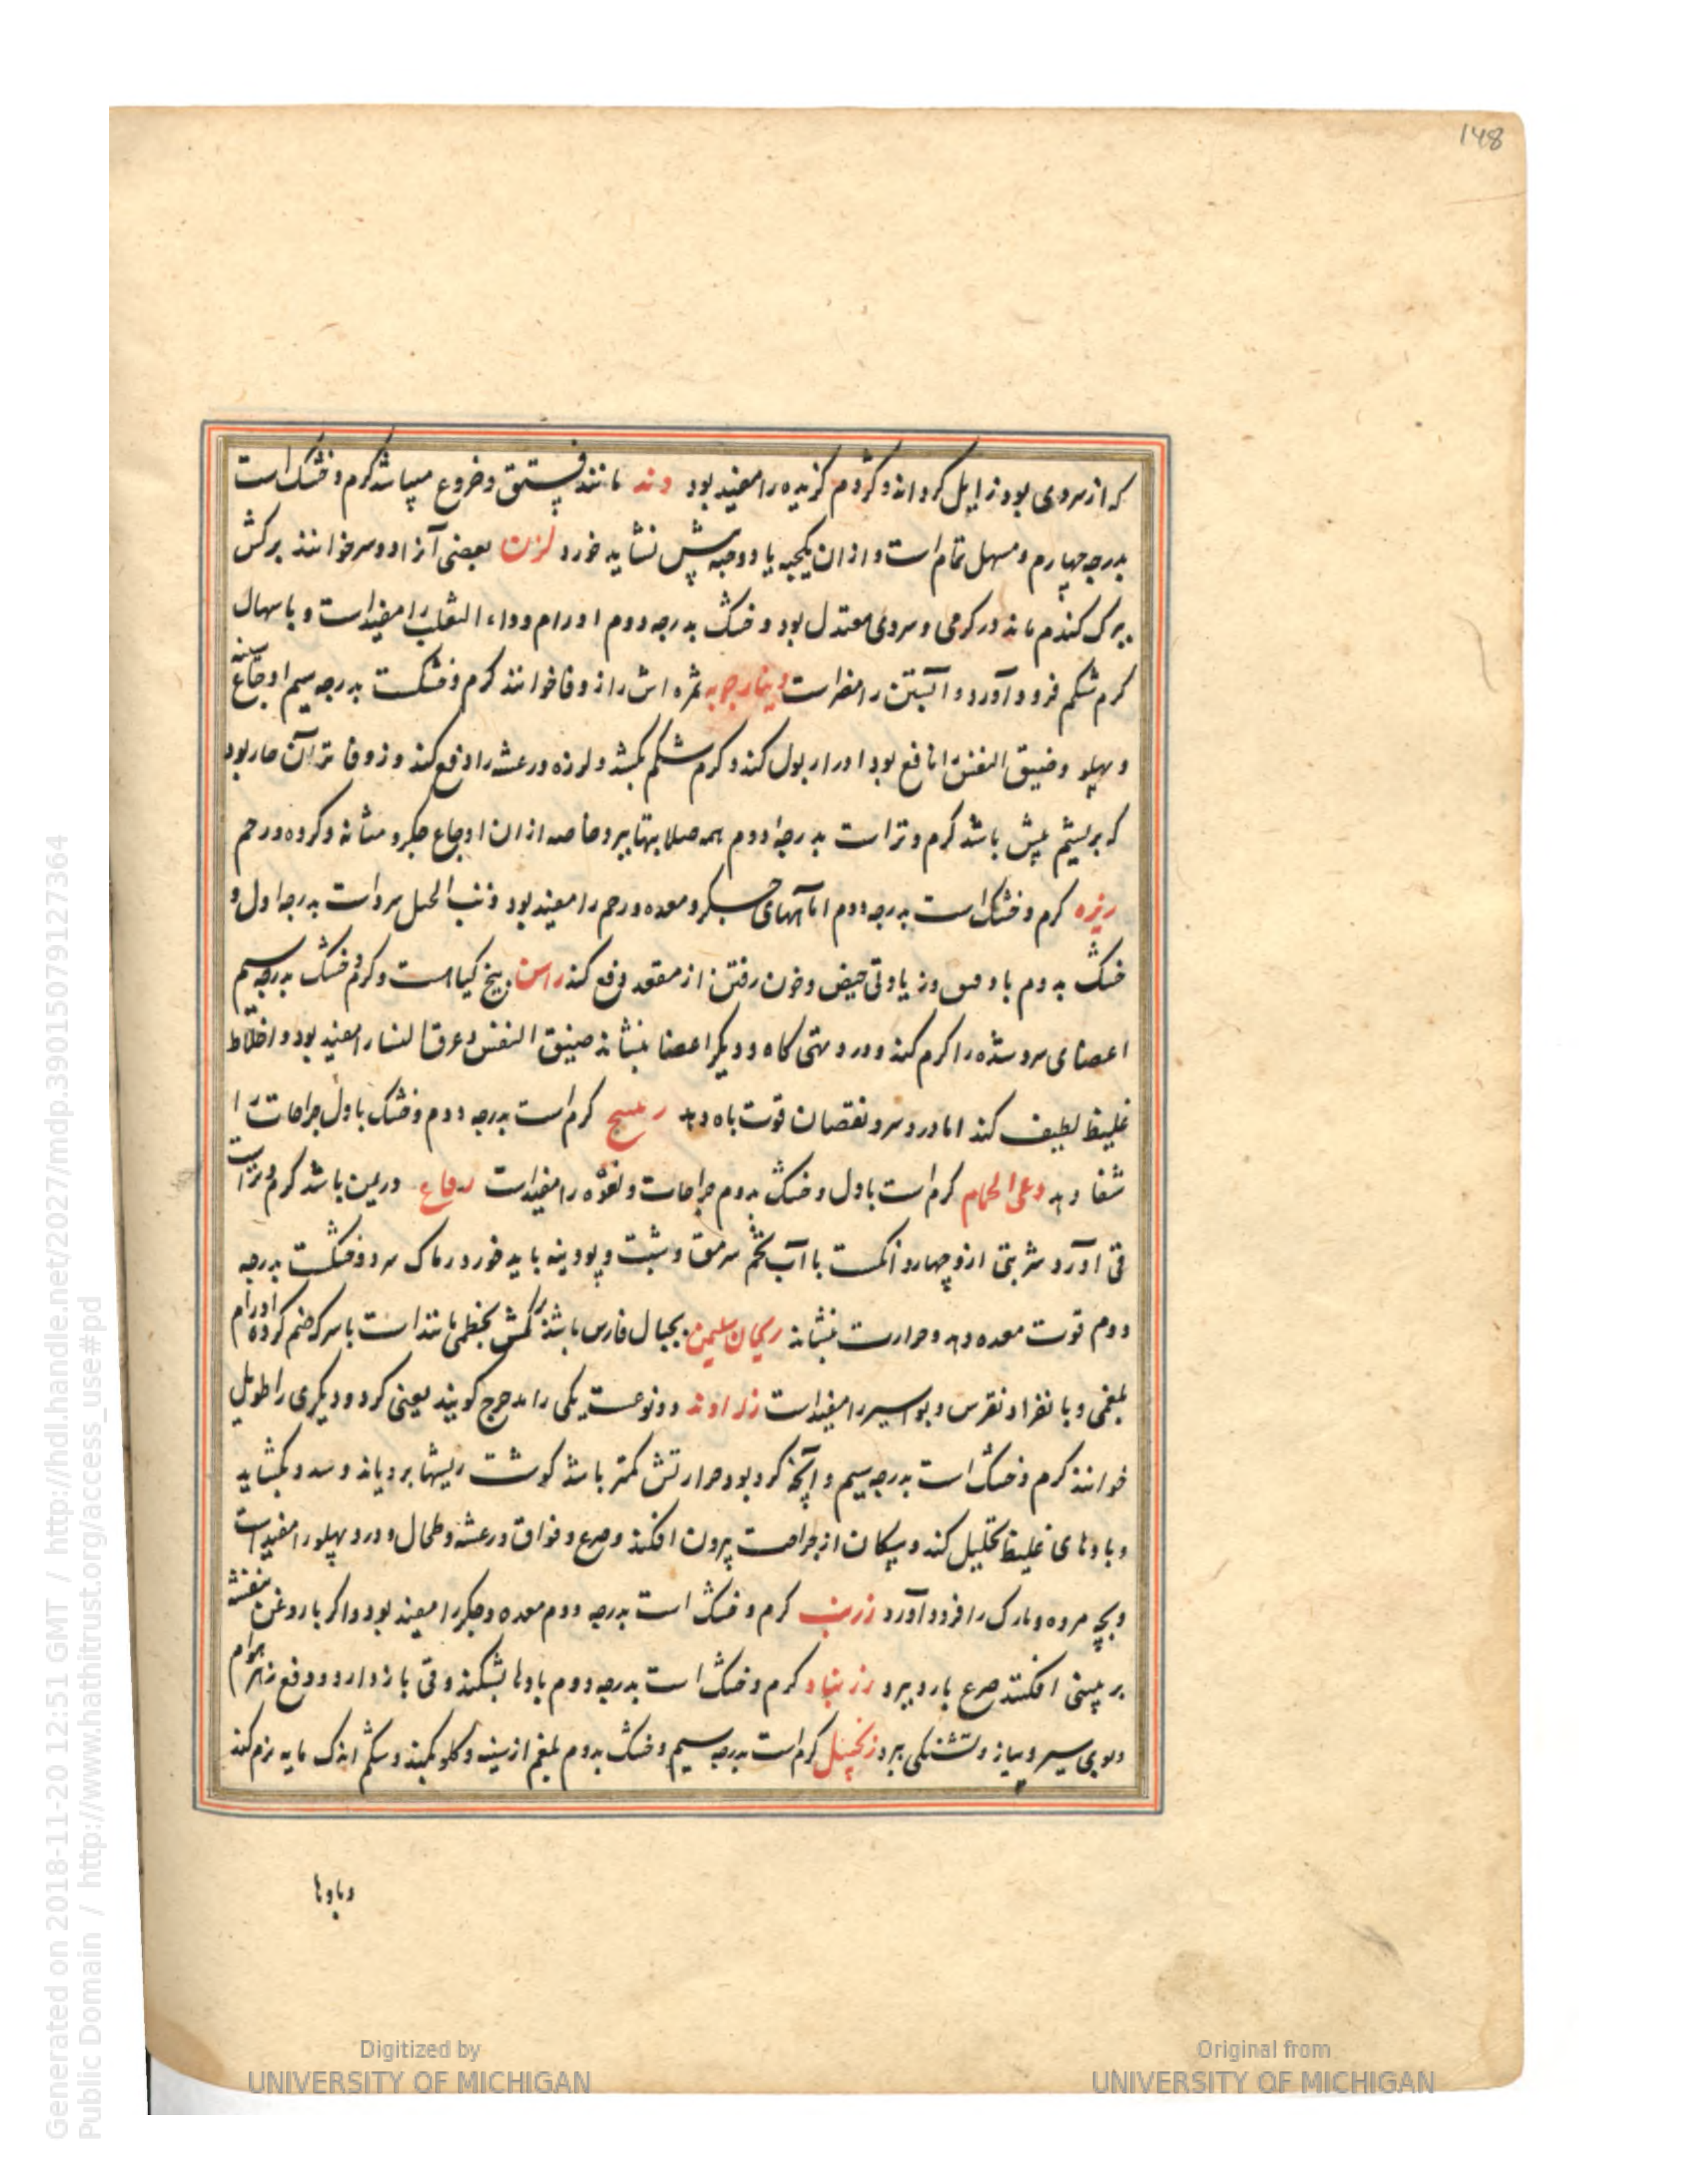 148
که از سردی بود زایل کرداند و کژدم کزیده را مفید بود دند مانند فستق و خروع میباشد کرم و خشک است
بدرجه چهارم و مسهل تمام است و از ان یکحبه یا دو حبه پیش نشاید خورد لزن بعضی آنرا دوسر خوانند برکش
ببرک کندم ماند در کرمی و سردی معتدل بود و خشک بدرجه دوم اورام و داء الثعلب را مفید است و باسهال
کرم شکم فرود آورد و آبستن را مضر است دینارجوبه ثمره اش را زوفا خوانند کرم و خشکست بدرجه سیم اوجاع سینه
و پهلو و ضیق النفس را نافع بود ادرار بول کند و کرم شکم بکشد و لرزه و رعشه را دفع کند و زوفا تر آن صار بود
که بر پشم میش باشد کرم و تر است بدرجه دوم همه صلابتها ببرد خاصه از ان اوجاع جکر و مثانه و کرده و رحم
ریزه کرم و خشک است بدرجه دوم اما آلتهای جسکر و معده و رحم را مفید بود ذنب الخیل سرد است بدرجه اول و
خشک بدوم با و زیادتی حیض و خون رفتن از مقعد دفع کند راسن بیخ کیا است و کرم و خشک بدرجه سیم
اعضای سرد شده را کرم کند و درد تهی کاه و دیکر اعضا بنشاند ضیق النفس و عرق النسا را مفید بود و اخلاط
غلیظ لطیف کند اما درد سر و نقصان قوت باه دهد کرم است بدرجه دوم و خشک باول جراحات را
شفا دهد رعی الحمام کرم است باول و خشک بدوم جراحات و لقوه را مفید است رقاع در یمن باشد کرم و تر است
قی آورد شربتی ازو چهار دانکست با آب تخم سرمق و شبت و پودینه باید خورد رماک سرد و خشکست بدرجه
دوم قوت معده دهد و حرارت بنشاند ریحان سلیمن بجبال فارس باشد برکش بخطمی مانند است با سرکه ضم کرده اورام
بلغمی و بانفراد نقرس و بواسیر را مفید است زراوند دو نوعست یکی را مدحرج کویند یعنی کرد و دیکری را طویل
خوانند کرم و خشک است بدرجه سیم و آنچه کرد بود حرارتش کمتر باشد کوشت ریشها برویاند و سدد بکشاید
و بادهای غلیظ تحلیل کند و پیکان از جراحت بیرون افکند و صرع و فواق و رعشه و طحال و درد پهلو را مفید است
و بچه مرده و مارک را فرود آورد زرنب کرم و خشک است بدرجه دوم معده و جکر را مفید بود و اکر با روغن بنفشه
بر بینی افکنند صرع بارد ببرد زرنباد کرم و خشک است بدرجه دوم بادها بشکند و قی باز دارد و دفع زهر هوام
و بوی سیر و پیاز و تشنکی ببرد زنجبیل کرم است بدرجه سیم و خشک بدوم بلغم از سینه و کلو بکند و شکم اندک مایه نرم کند
و بادها
Generated on 2018-11-20 12:51 GMT / http://hdl.handle.net/2027/mdp.39015079127364
Public Domain / http://www.hathitrust.org/access_use#pd
Digitized by
UNIVERSITY OF MICHIGAN
Original from
UNIVERSITY OF MICHIGAN